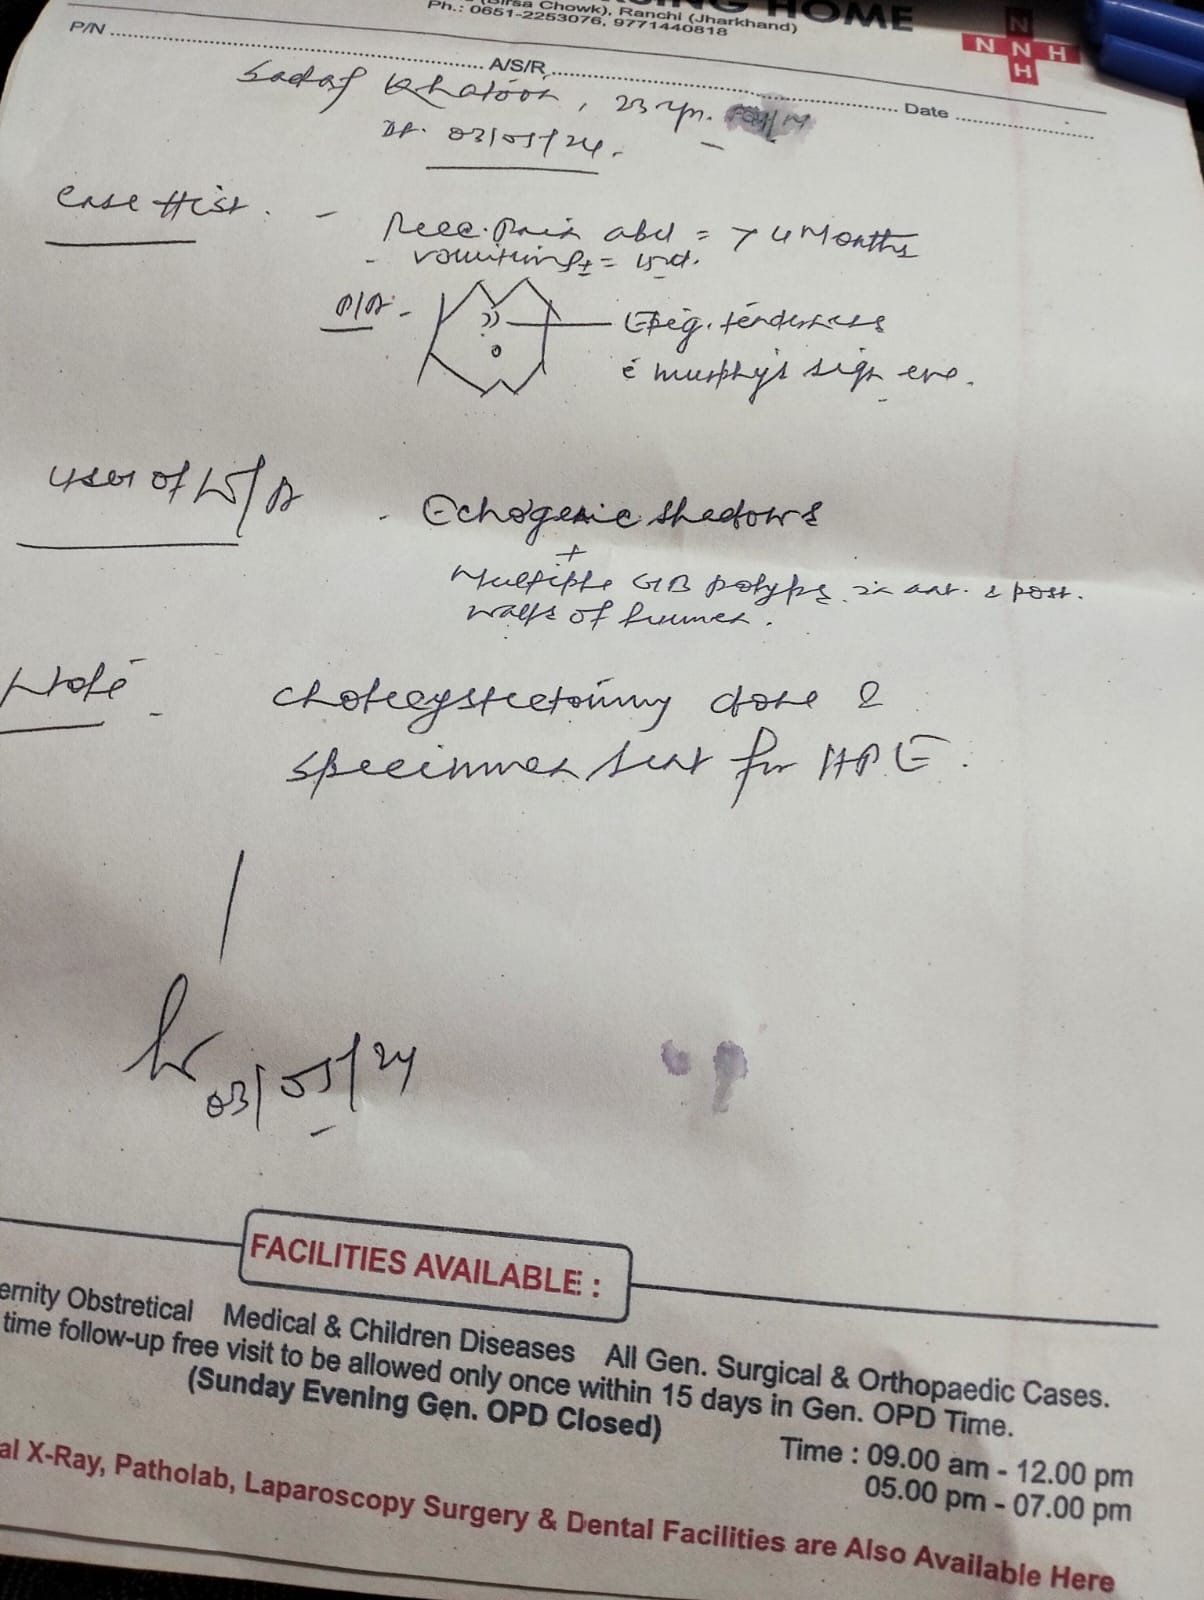 HOME
(Birsa Chowk), Ranchi (Jharkhand)
Ph.: 0651-2253076, 9771440818
N N H
N
H
P/N ........ A/S/R ........ Date ........
Sadaf Khatoon, 23 yrs.
Dt. 03/05/24.
Case Hist. - Recc. Pain abd = > 4 Months
- vomiting ±
P/A. - Epig. tenderness
c̄ murphy's sign +ve.
USG of W/A - Echogenic shadows
+
Multiple GB polyps in ant. & post.
walls of lumen.
Note - Cholecystectomy done &
specimen sent for HPE.
03/05/24
FACILITIES AVAILABLE :
ernity Obstretical Medical & Children Diseases All Gen. Surgical & Orthopaedic Cases.
time follow-up free visit to be allowed only once within 15 days in Gen. OPD Time.
(Sunday Evening Gen. OPD Closed)
Time : 09.00 am - 12.00 pm
05.00 pm - 07.00 pm
al X-Ray, Patholab, Laparoscopy Surgery & Dental Facilities are Also Available Here